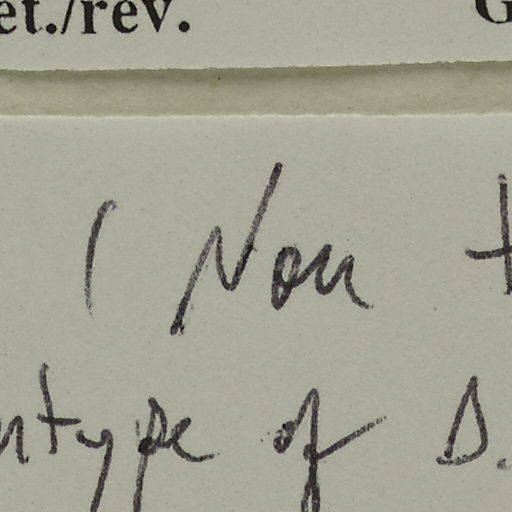 et./rev. G
( Non t
ntype of D.